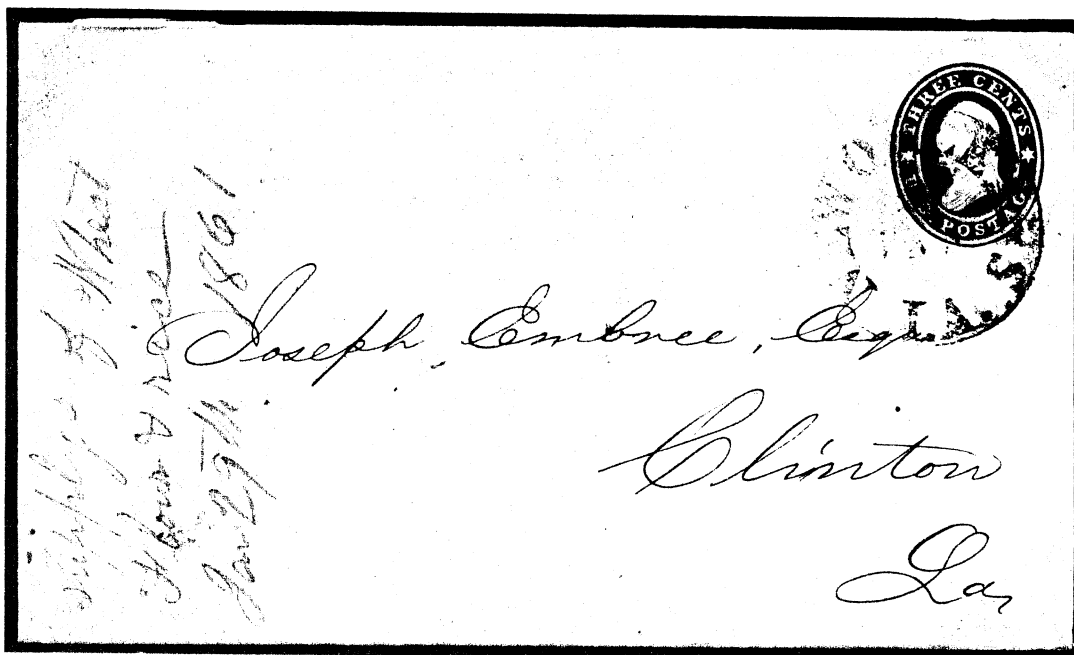 THREE CENTS
POSTAG
LA.
Joseph Embree, Esqr.
Clinton
La,
of West
Jan 29th 1861